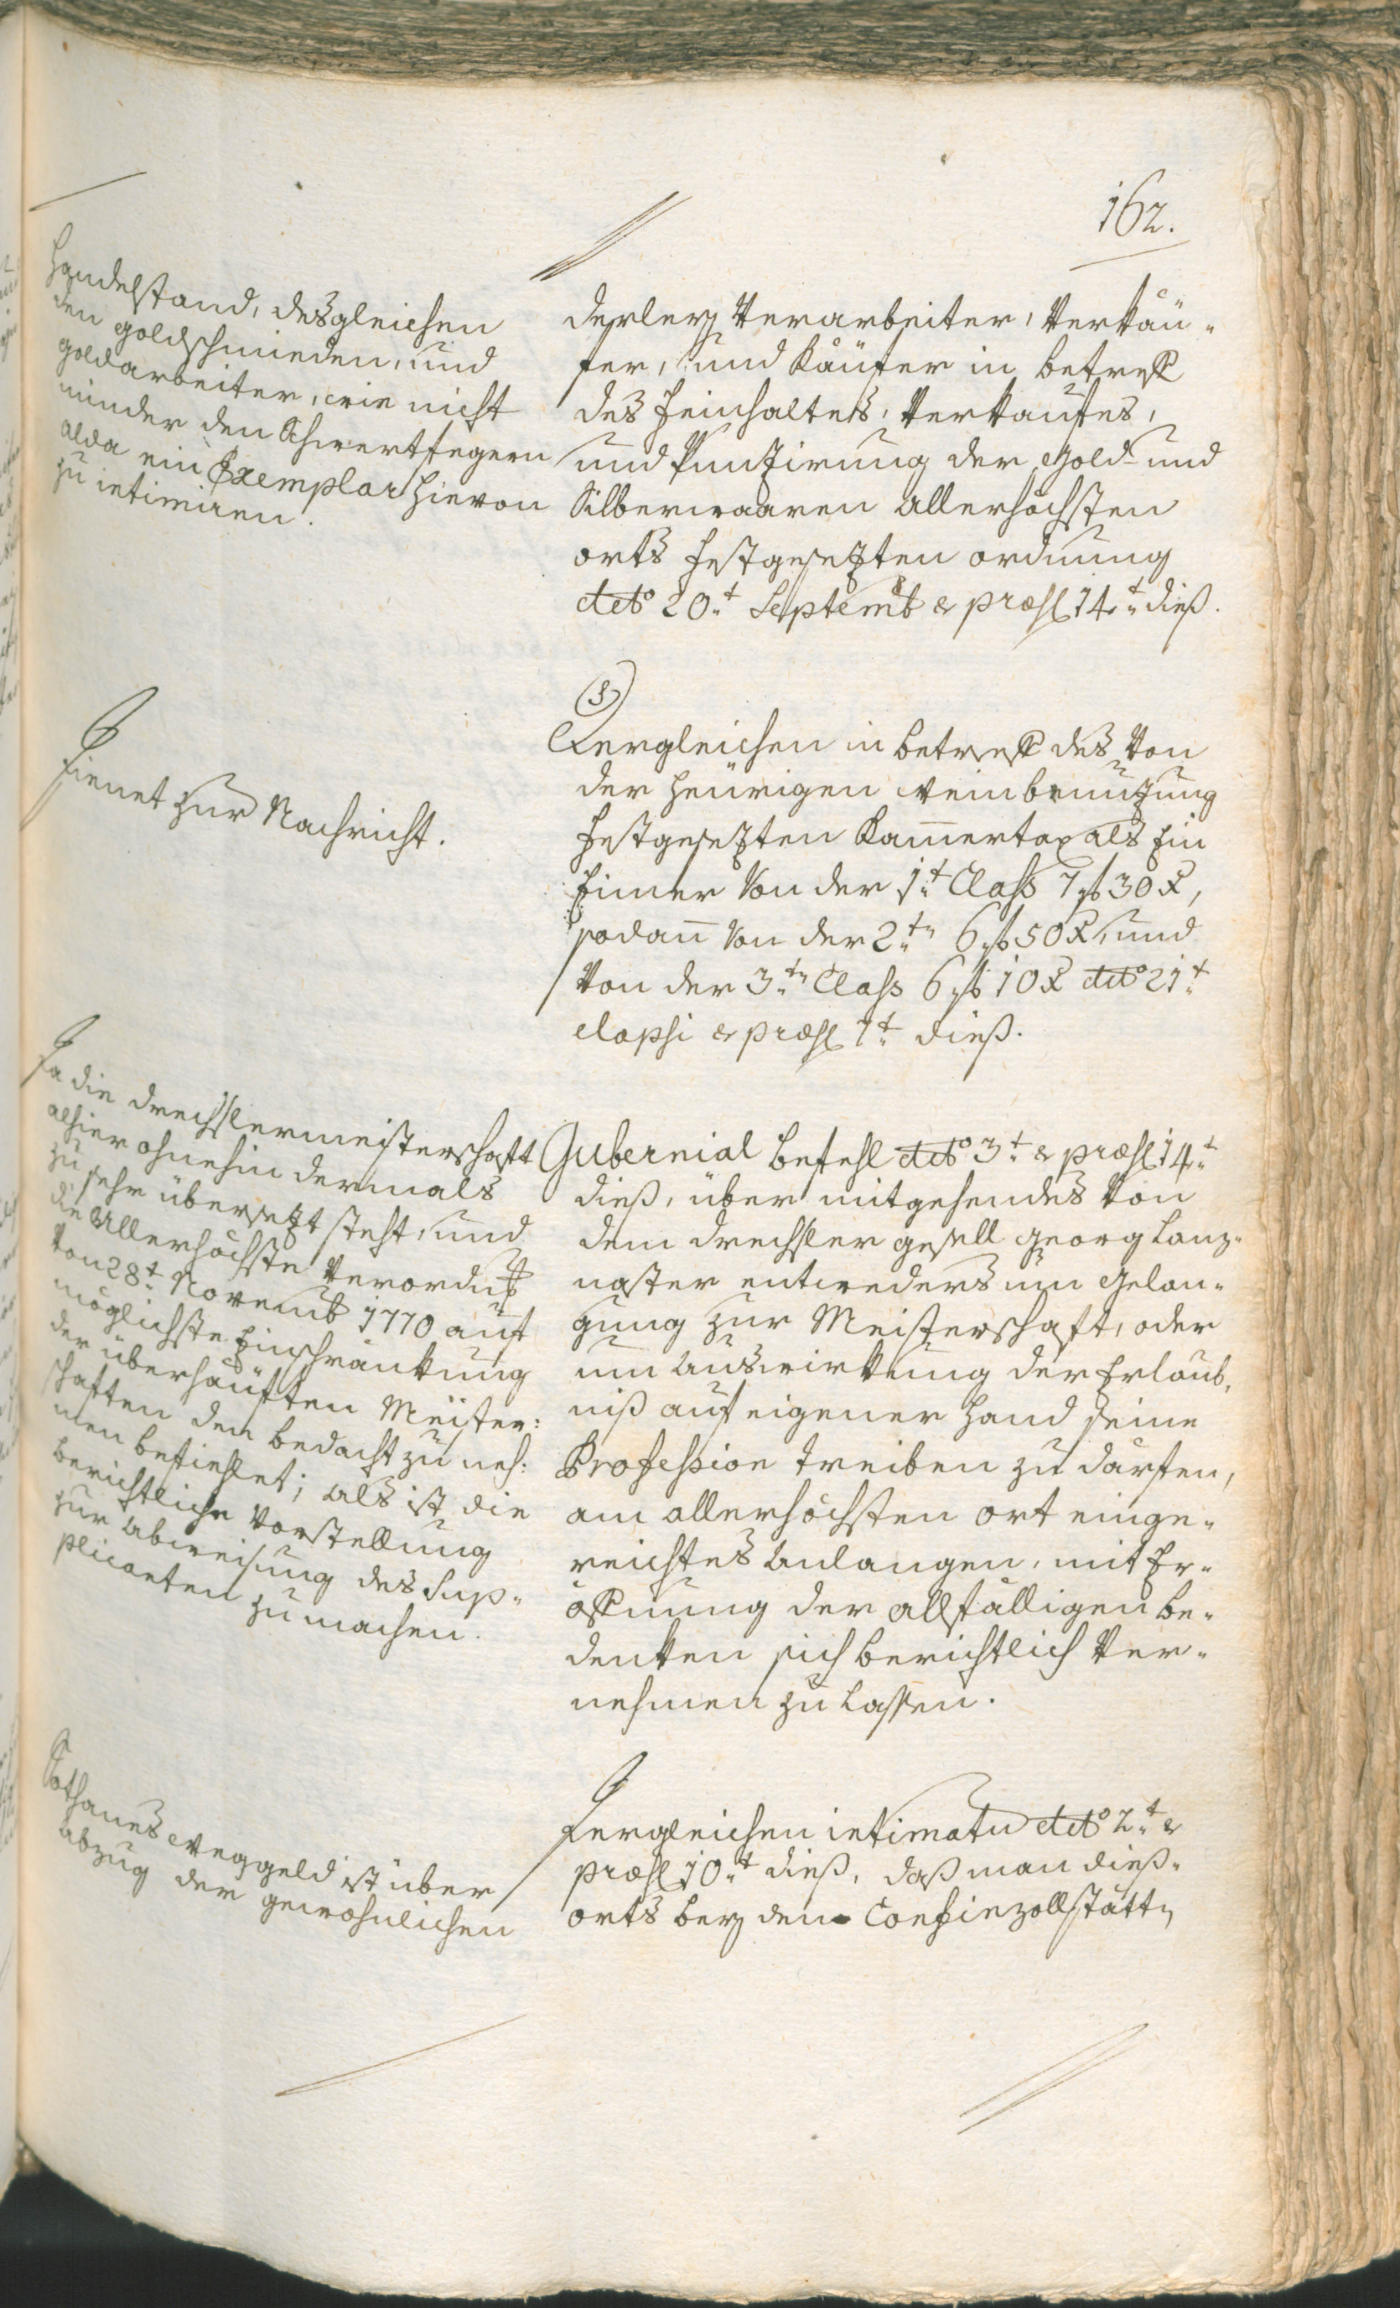 162.
Handelstand, desgleichen
den goldschmieden, und
goldarbeiter, wie nicht
minder den Schwertfegern
alda ein Exemplar hievon
zu intimiren.
derley Verarbeiter, Verkäu-
fer, und Käufer in betreff
des Feinhaltes, Verkaufes,
und Punzirung der Gold- und
Silberwaaren allerhöchsten
orts festgesezten ordnung
ddto 20.t Septemb & præs. 14.t dieß.
Dienet zur Nachricht.
Dergleichen in betreff des von
der heürigen Weinbenuzung
festgesezten Kam̅ertax als Ein
Eimer von der 1.t Class 7 f 30 x,
sodan̅ von der 2.tn 6 f 50 x, und
von der 3.tn Class 6 f 10 x ddto 21.t
elapsi & præs. 7.t dieß.
Da die drechslermeisterschaft
alhier ohnehin dermals
zu sehr übersezt steht, und
die allerhöchste Verordng
von 28.t Novemb 1770 auf
möglichste Einschränkung
der überhäuften Meister:
schaften den bedacht zu neh:
men befiehlet; als ist die
berichtliche Vorstellung
zur abweisung des Sup-
plicanten zu machen.
Gubernial befehl ddto 3.t & præs. 14.t
dieß, über mitgehendes von
dem drechsler gesell Georg Lanz-
naster entweders um Gelan-
gung zur Meisterschaft, oder
um auswirkung der Erlaub-
niß auf eigener Hand seine
Profession treiben zu därfen,
am allerhöchsten ort einge-
reichtes anlangen, mit Er-
öffnung der allfälligen be-
denken sich berichtlich ver-
nehmen zu lassen.
Sothanes Weggeld ist über
abzug der gewöhnlichen
Dergleichen intimatu ddto 2.t &
præs. 10.t dieß, daß man dieß-
orts bey dem Confinzollstätt